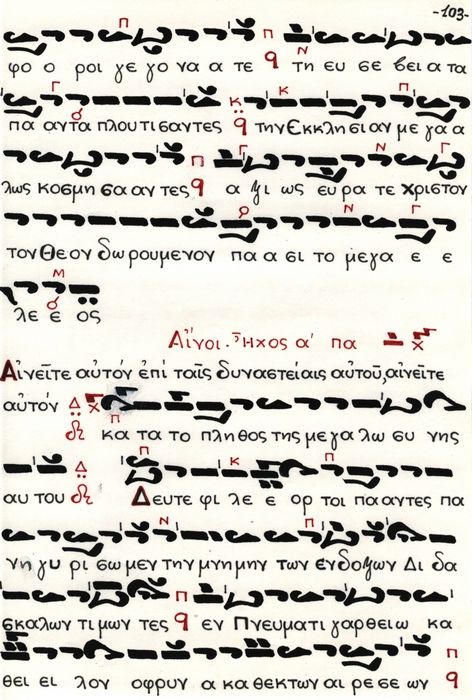 -103-
φο ο ροι γε γο να α τε τη ευ σε βει α τα
πα αντα πλουτισαντες την Εκκλησιαν με γα α
λως κοσμη σα αν τες α ξι ως ευ ρα τε χριστον
τον Θεον δω ρουμενον πα α σι το μεγα ε ε
λε ε ος
Αἶνοι. Ἦχος α' πα
Αἰνεῖτε αὐτόν ἐπί ταῖς δυναστείαις αὐτοῦ, αἰνεῖτε
αὐτόν κα τα το πληθος της με γα λω συ νης
αυ του Δευτε φι λε ε ορ τοι πα αντες πα
νη γυ ρι σω μεν την μνημην των ενδοξων Δι δα
σκαλων τι μων τες εν Πνευματι γαρθειω κα
θει ει λον οφρυν α κα θεκτων αι ρε σε ων